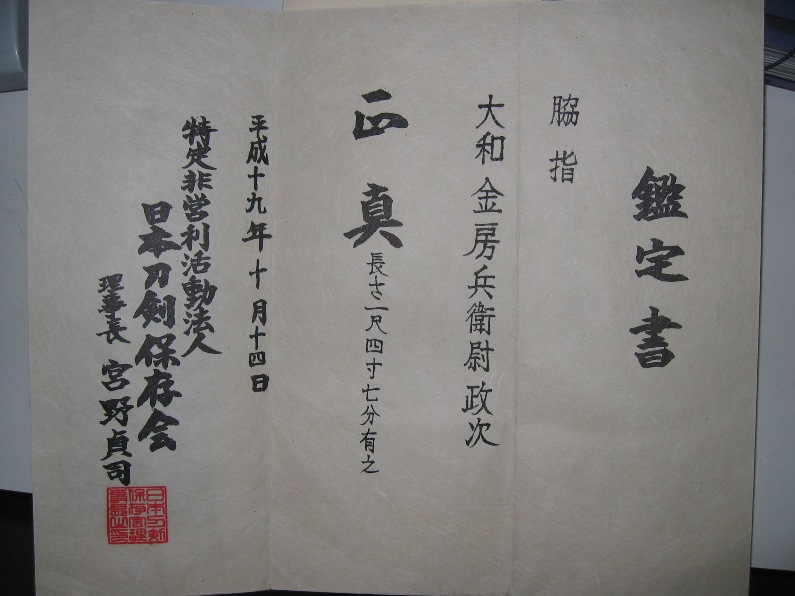 鑑定書
脇指
大和金房兵衛尉政次
正真
長さ一尺四寸七分有之
平成十九年十月十四日
特定非営利活動法人
日本刀剣保存会
理事長 宮野貞司